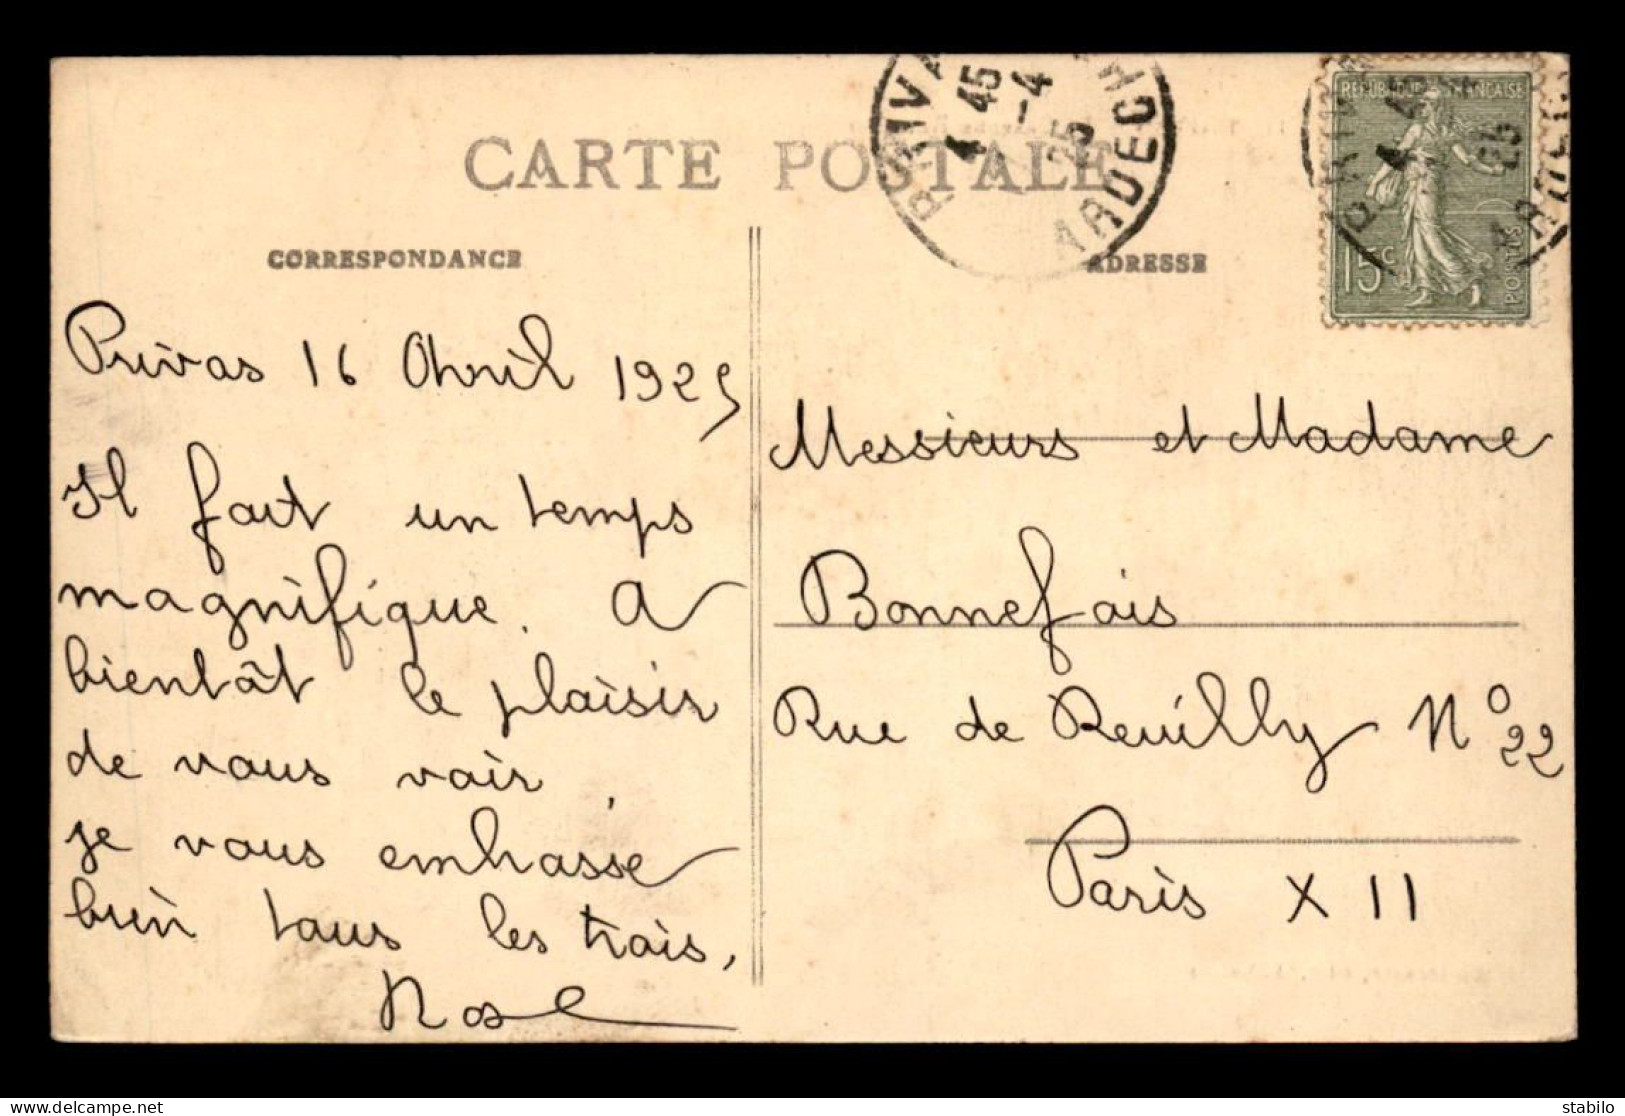 CARTE POSTALE
CORRESPONDANCE
ADRESSE
4 45
-4
25
ARDECHE
REPUBLIQUE FRANÇAISE
15c
POSTES
ARDECHE
Privas 16 Avril 1925
Il fait un temps
magnifique. A
bientôt le plaisir
de vous voir,
je vous embrasse
bien tous les trois,
Rose
Messieurs et Madame
Bonnefois
Rue de Reuilly N° 22
Paris X 11
stabilo